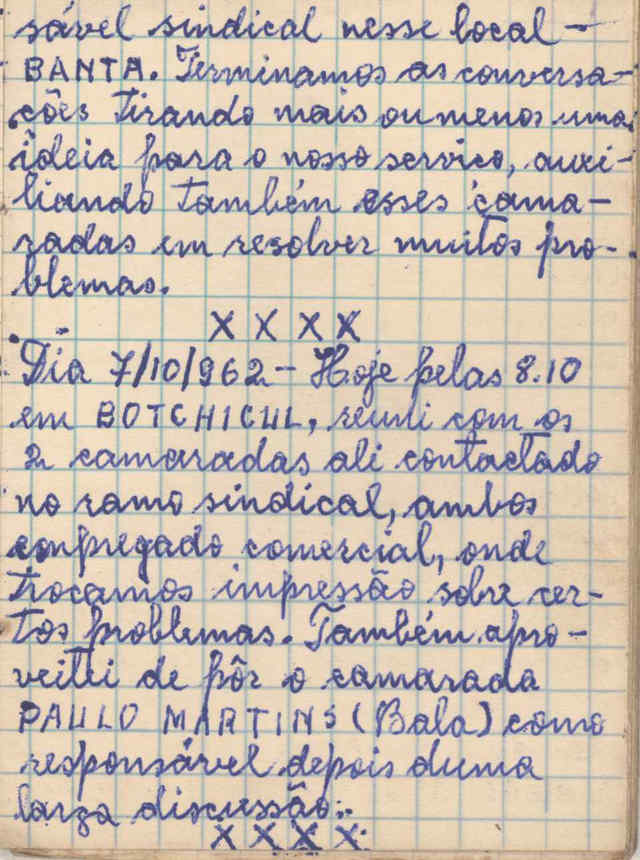 sável sindical nesse local –
BANTA. Terminamos as conversa-
ções tirando mais ou menos uma
ideia para o nosso serviço, auxi-
liando também esses cama-
radas em resolver muitos pro-
blemas.
X X X X
Dia 7/10/962 – Hoje pelas 8.10
em BOTCHICUL, reuni com os
2 camaradas ali contactado
no ramo sindical, ambos
empregado comercial, onde
trocamos impressão sobre cer-
tos problemas. Também apro-
veitei de pôr o camarada
PAULO MARTINS (Bala) como
responsável depois duma
larga discussão.
X X X X